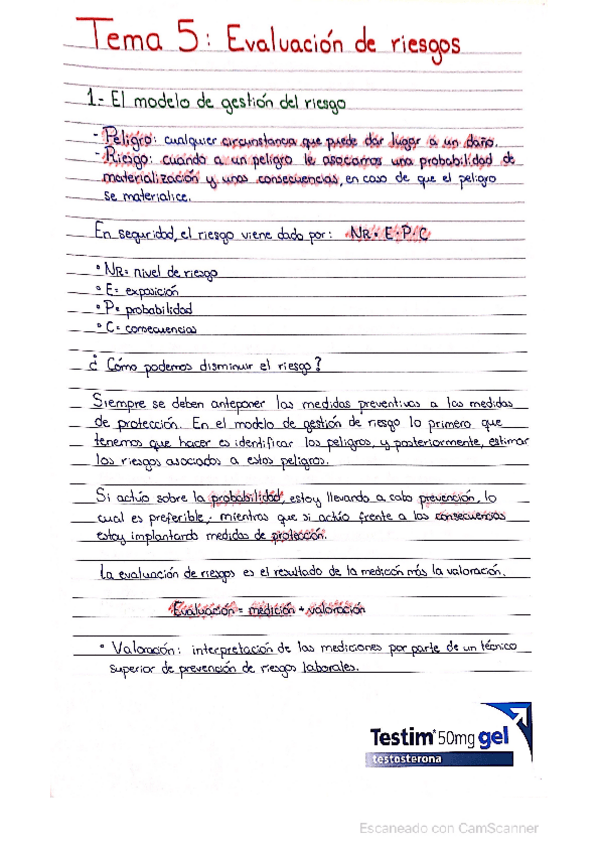 Tema 5: Evaluación de riesgos
1.- El modelo de gestión del riesgo
- Peligro: cualquier circunstancia que puede dar lugar a un daño.
- Riesgo: cuando a un peligro le asociamos una probabilidad de
materialización y unas consecuencias, en caso de que el peligro
se materialice.
En seguridad, el riesgo viene dado por: NR = E·P·C
° NR= nivel de riesgo
° E= exposición
° P= probabilidad
° C= consecuencias
¿ Cómo podemos disminuir el riesgo?
Siempre se deben anteponer las medidas preventivas a las medidas
de protección. En el modelo de gestión de riesgo lo primero que
tenemos que hacer es identificar los peligros, y posteriormente, estimar
los riesgos asociados a estos peligros.
Si actúo sobre la probabilidad, estoy llevando a cabo prevención, lo
cual es preferible; mientras que si actúo frente a las consecuencias
estoy implantando medidas de protección.
La evaluación de riesgos es el resultado de la medición más la valoración.
Evaluación = medición + valoración
° Valoración: interpretación de las mediciones por parte de un técnico
superior de prevención de riesgos laborales.
Testim® 50mg gel
testosterona
Escaneado con CamScanner